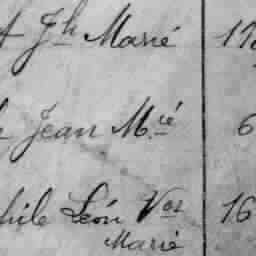 Jh Marié 17
Jean Mié 6
hile Léon Vor 16
Marié